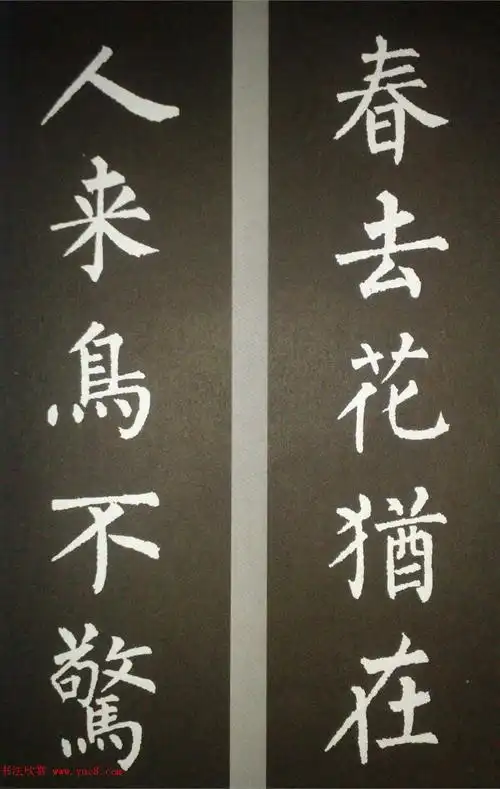 春去花猶在
人来鳥不驚
书法欣赏 www.yuc8.com